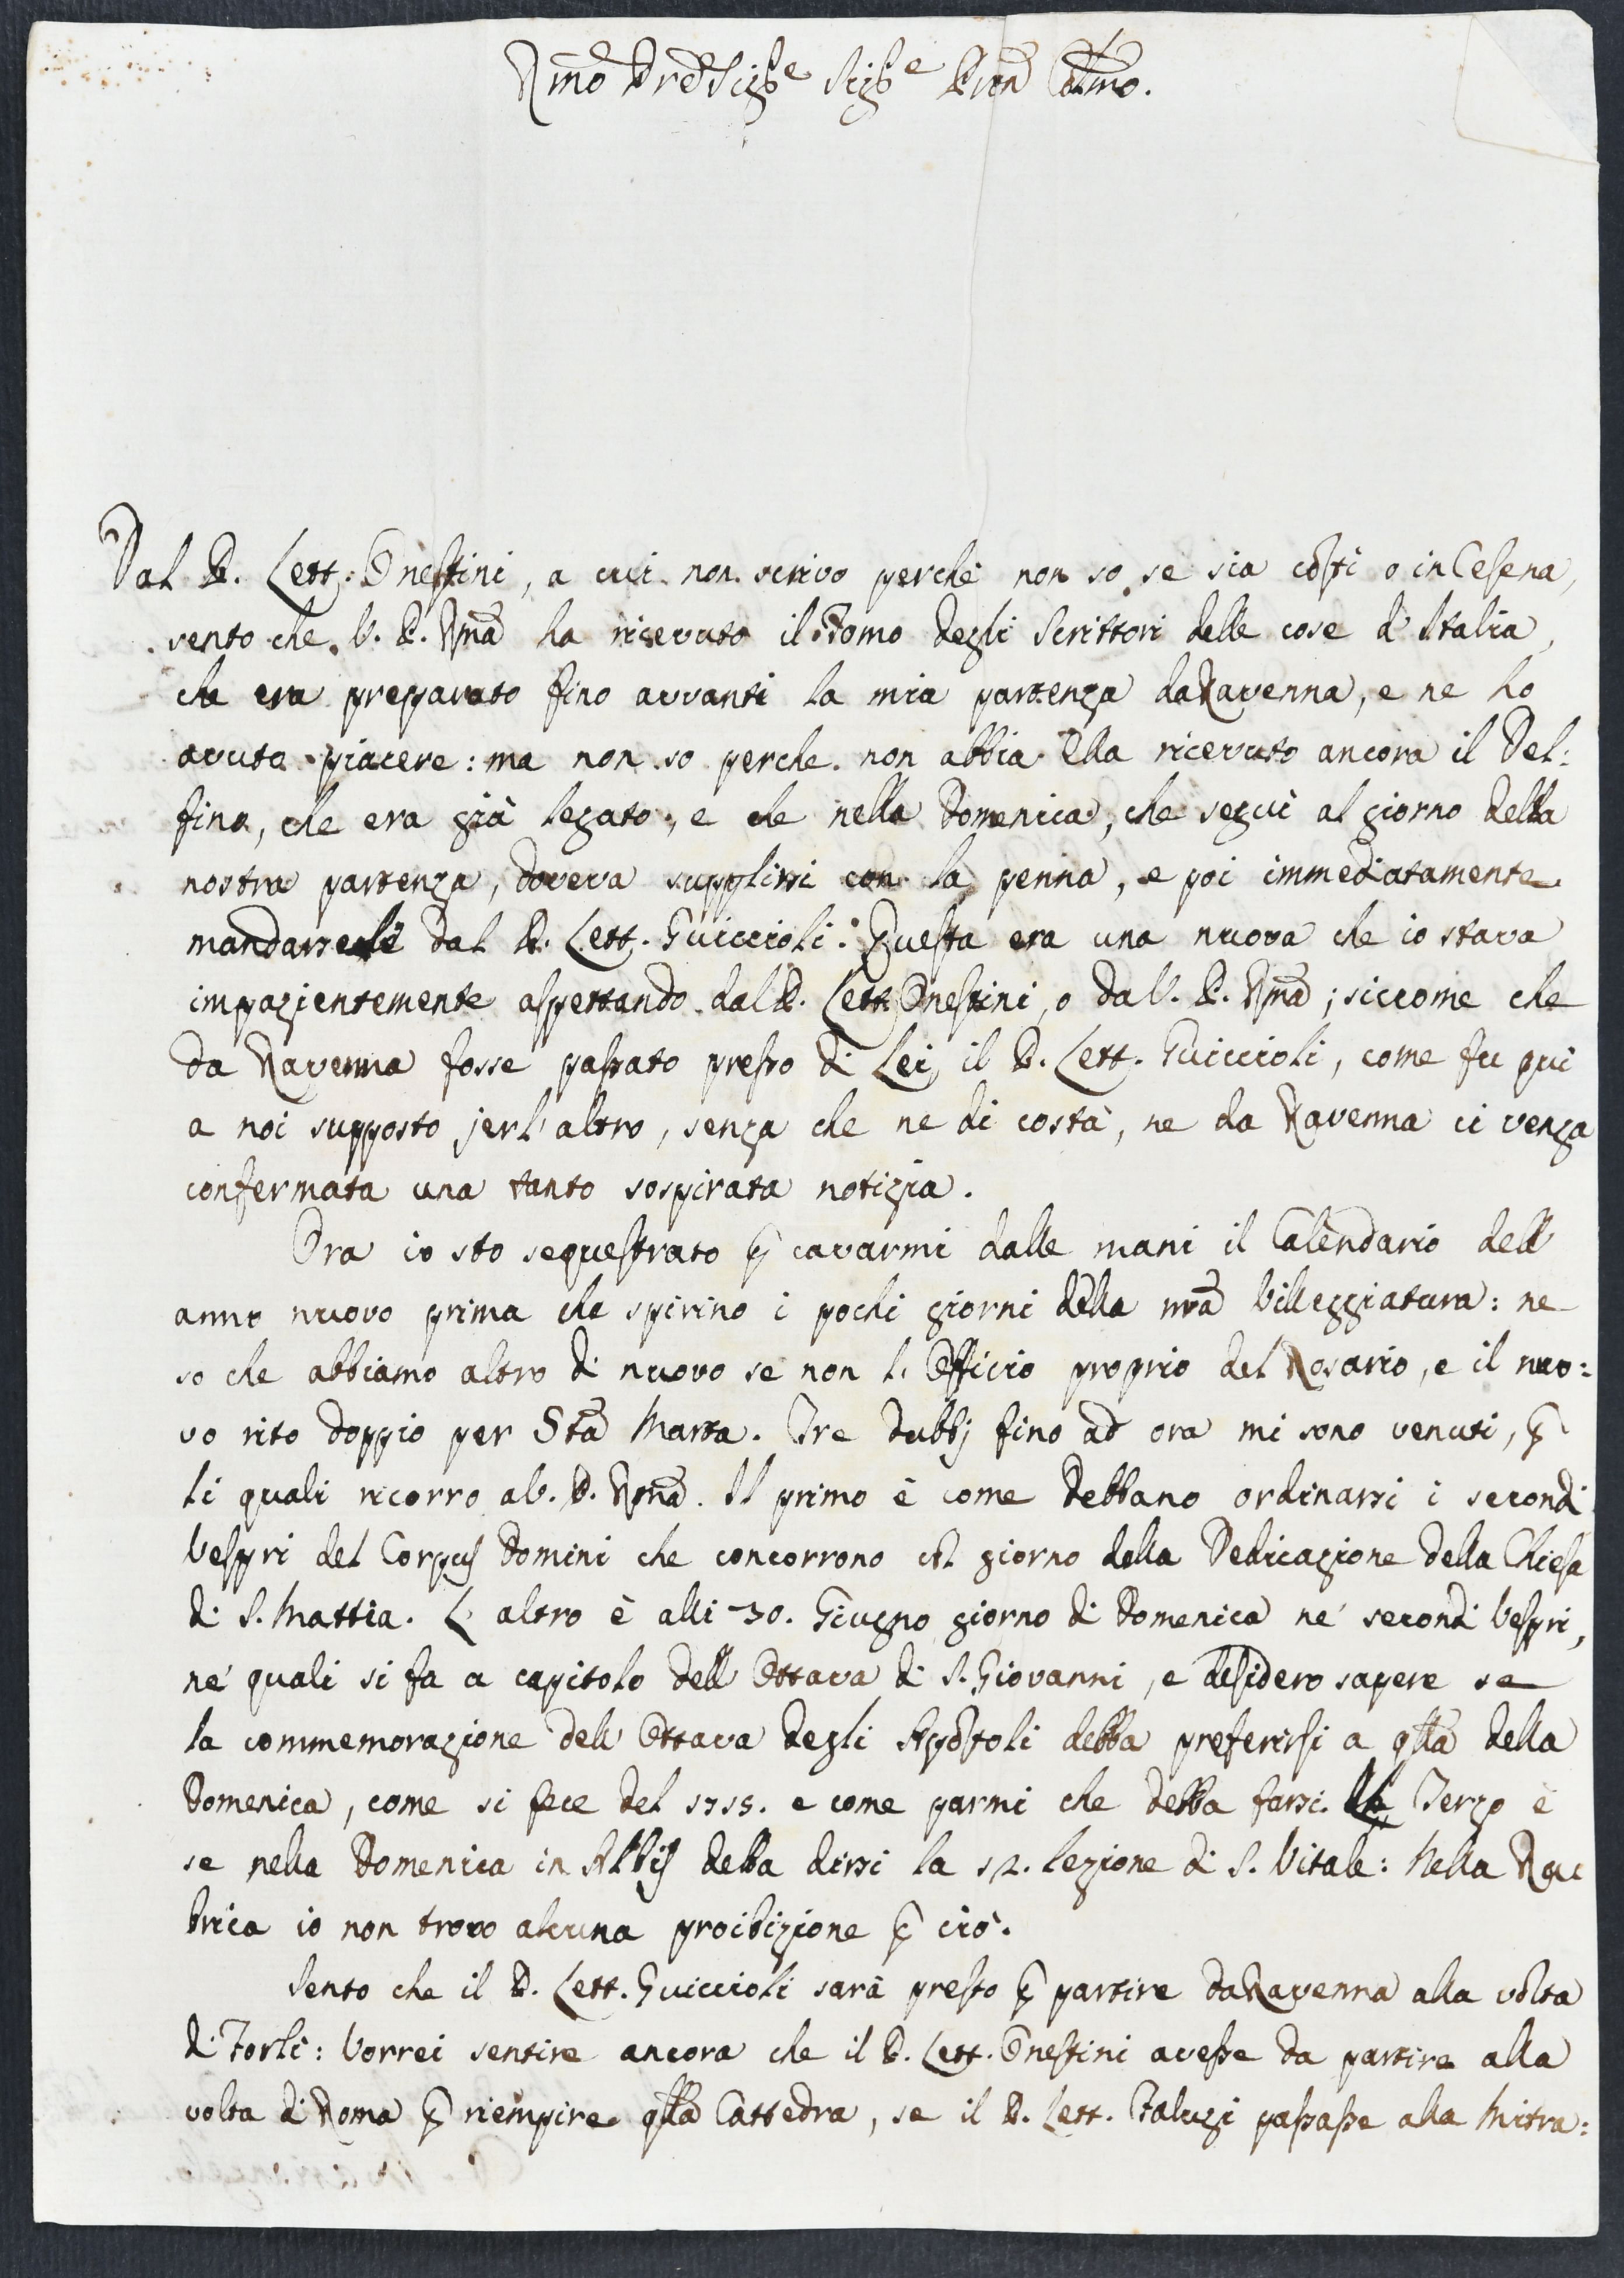 Rmo Pre Sigre Sigre Pron Colmo.
Dal P. Lett. Onestini, a cui non scrivo perchè non so se sia costi o in Cesena,
sento che V. P. Rma ha ricevuto il Tomo degli Scrittori delle cose d'Italia,
che era preparato fino avvanti la mia partenza da Ravenna, e ne ho
avuto piacere: ma non so perche non abbia Ella ricevuto ancora il Del:
fino, che era già legato, e che nella Domenica, che seguì al giorno della
nostra partenza, doveva supplirsi con la penna, e poi immediatamente
mandarsele dal P. Lett. Guiccioli: Questa era una nuova che io stava
impazientemente aspettando dal P. Lett. Onestini, o da V. P. Rma; siccome che
da Ravenna fosse passato presso di Lei il P. Lett. Guiccioli, come fu qui
a noi supposto jerl'altro, senza che ne di costà, ne da Ravenna ci venga
confermata una tanto sospirata notizia.
Ora io sto sequestrato p cavarmi dalle mani il Calendario dell'
anno nuovo prima che spirino i pochi giorni della nra Villeggiatura: ne
so che abbiamo altro di nuovo se non l'Officio proprio del Rosario, e il nuo:
vo rito doppio per Sta Marta. Tre dubbj fino ad ora mi sono venuti, p
li quali ricorro a V. P. Rma. Il primo è come debbano ordinarsi i secondi
Vespri del Corpus Domini che concorrono col giorno della Dedicazione della Chiesa
di S. Mattia. L'altro è alli 30. Giugno giorno di Domenica ne' secondi Vespri,
ne' quali si fa a capitolo dell'Ottava di S. Giovanni, e desidero sapere se
la commemorazione dell'Ottava degli Apostoli debba preferirsi a qlla della
Domenica, come si fece del 1715. e come parmi che debba farsi. Terzo è
se nella Domenica in Albis debba dirsi la 12. lezione di S. Vitale: Nella Ru
brica io non trovo alcuna proibizione p ciò.
Sento che il P. Lett. Guiccioli sarà presto p partire da Ravenna alla volta
di Forlì: Vorrei sentire ancora che il P. Lett. Onestini avesse da partire alla
volta di Roma p riempire qlla Cattedra, se il P. Lett. Galuzi passasse alla Mitra: